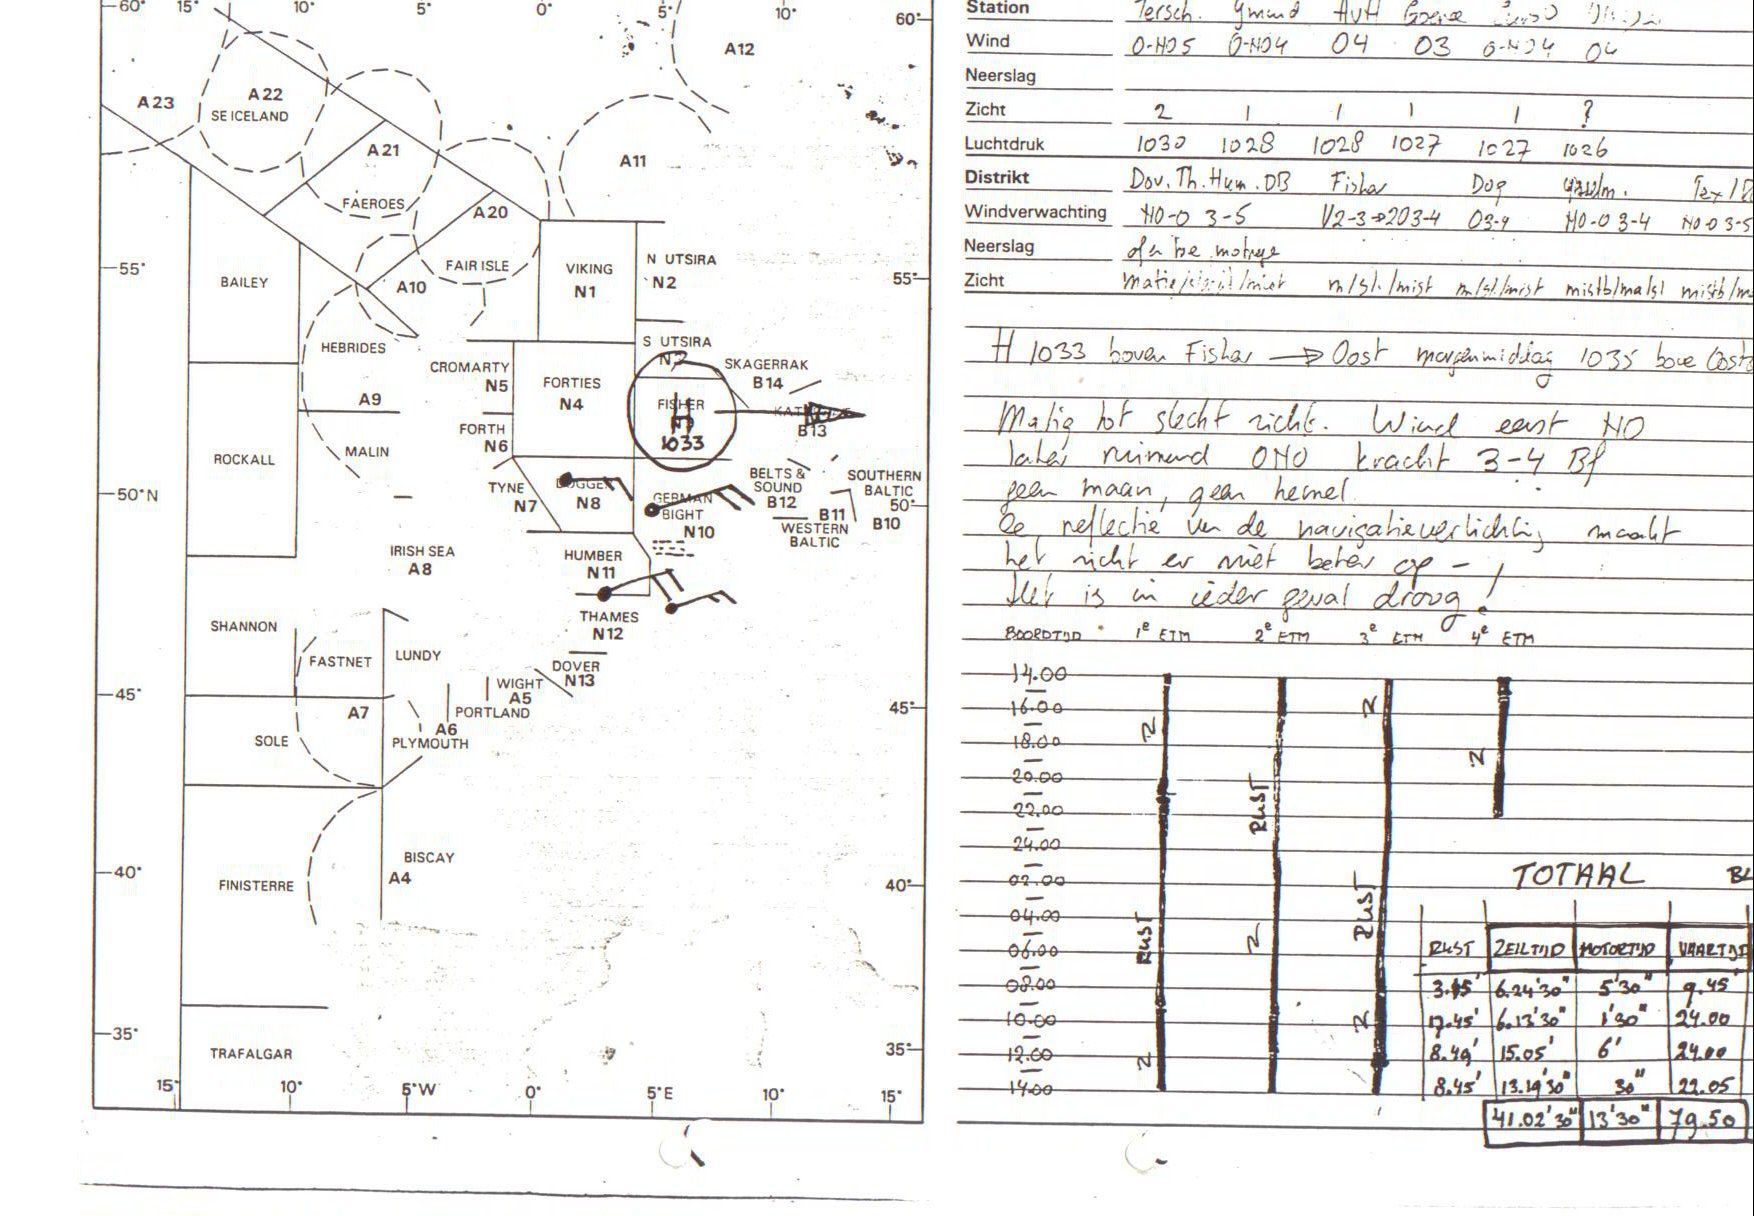 60° 15° 10° 5° 0° 5° 10° 60°
A12
A23
A22
SE ICELAND
A21
A11
FAEROES
A20
N UTSIRA
N2
55° FAIR ISLE VIKING
N1
55°
BAILEY
A10
S UTSIRA
HEBRIDES
SKAGERRAK
B14
CROMARTY
N5
FORTIES
N4
A9
FISHER
H
1033
B13
FORTH
N6
MALIN
ROCKALL
BELTS &
SOUND
B12
SOUTHERN
BALTIC
B10
TYNE
N7
DOGGER
N8
GERMAN
BIGHT
N10
B11
WESTERN
BALTIC
50°N
50°
IRISH SEA
A8
HUMBER
N11
THAMES
N12
SHANNON
FASTNET
LUNDY
DOVER
N13
WIGHT
A5
45°
PORTLAND
45°
A7
A6
SOLE
PLYMOUTH
BISCAY
A4
40°
FINISTERRE
40°
35°
TRAFALGAR
35°
15° 10° 5°W 0° 5°E 10° 15°
Station Tersch. HvH
Wind O-NO5 O-NO4 O4 O3 O-NO4 O4
Neerslag
Zicht 2 1 1 1 1 ?
Luchtdruk 1030 1028 1028 1027 1027 1026
Distrikt Dov. Th. Hum. DB Fisher Dog
Windverwachting NO-O 3-5 O3-4 NO-O 3-4 NO-O 3-5
Neerslag
Zicht /mist m/sl./mist m/sl/mist mistb/ma/sl
H 1033 boven Fisher → Oost morgenmiddag 1035
Matig tot slecht zicht. Wind eerst NO
later ruimend ONO kracht 3-4 Bf
geen maan, geen hemel.
De reflectie van de navigatieverlichting maakt
het zicht er niet beter op - !
Het is in ieder geval droog!
BOORDTIJD 1e ETM 2e ETM 3e ETM 4e ETM
14.00
16.00
18.00
20.00
22.00
24.00
02.00
04.00
06.00
08.00
10.00
12.00
14.00
Z
RUST
Z
RUST
Z
Z
RUST
Z
Z
TOTAAL
RUST ZEILTIJD MOTORTIJD VAARTIJD
6.24'30" 5'30" 9.45
17.45' 6.13'30" 1'30" 24.00
8.49' 15.05' 6' 24.00
8.45' 13.19'30" 30" 22.05
41.02'30" 13'30" 79.50